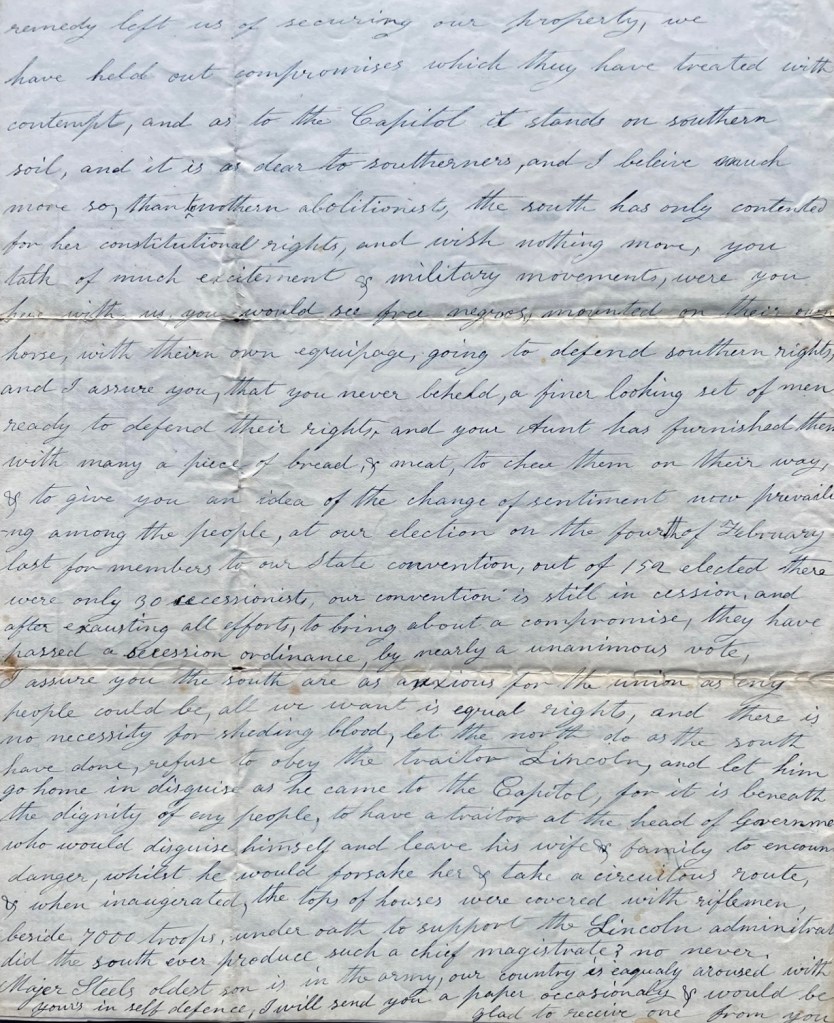 remedy left us of securing our property, we
have held out compromises which they have treated with
contempt, and as to the Capitol it stands on southern
soil, and it is as dear to southerners, and I beleive much
more so, than to nothern abolitionist, the south has only contented
for her constitutional rights, and wish nothing more, you
talk of much excitement & military movements, were you
but with us, you would see free negroes, mounted on their own
horse, with theirn own equipage, going to defend southern rights,
and I assure you, that you never beheld, a finer looking set of men
ready to defend their rights, and your Aunt has furnished them
with many a piece of bread, & meat, to chew them on their way,
& to give you an idea of the change of sentiment now prevaili
ng among the people, at our election on the fourth of February
last for members to our State convention, out of 152 elected there
were only 30 secessionists, our convention is still in cession, and
after exausting all efforts, to bring about a compromise, they have
passed a secession ordinance, by nearly a unanimous vote,
I assure you the south are as anxious for the union as eny
people could be, all we want is equal rights, and there is
no necessity for sheding blood, let the north do as the south
have done, refuse to obey the traitor Lincoln, and let him
go home in disguise as he came to the Capitol, for it is beneath
the dignity of eny people, to have a traitor at the head of Governme
who would disguise himself and leave his wife & family to encoun
danger, whilst he would forsake her & take a circuitous route,
& when inaugerated, the tops of houses were covered with riflemen,
beside 7000 troops, under oath to support the Lincoln administrat
did the south ever produce such a chief magistrate? no never.
Majer Steels oldest son is in the army, our country is eaqualy aroused with
yours in self defence, I will send you a paper occasionaly & would be
glad to receive one from you